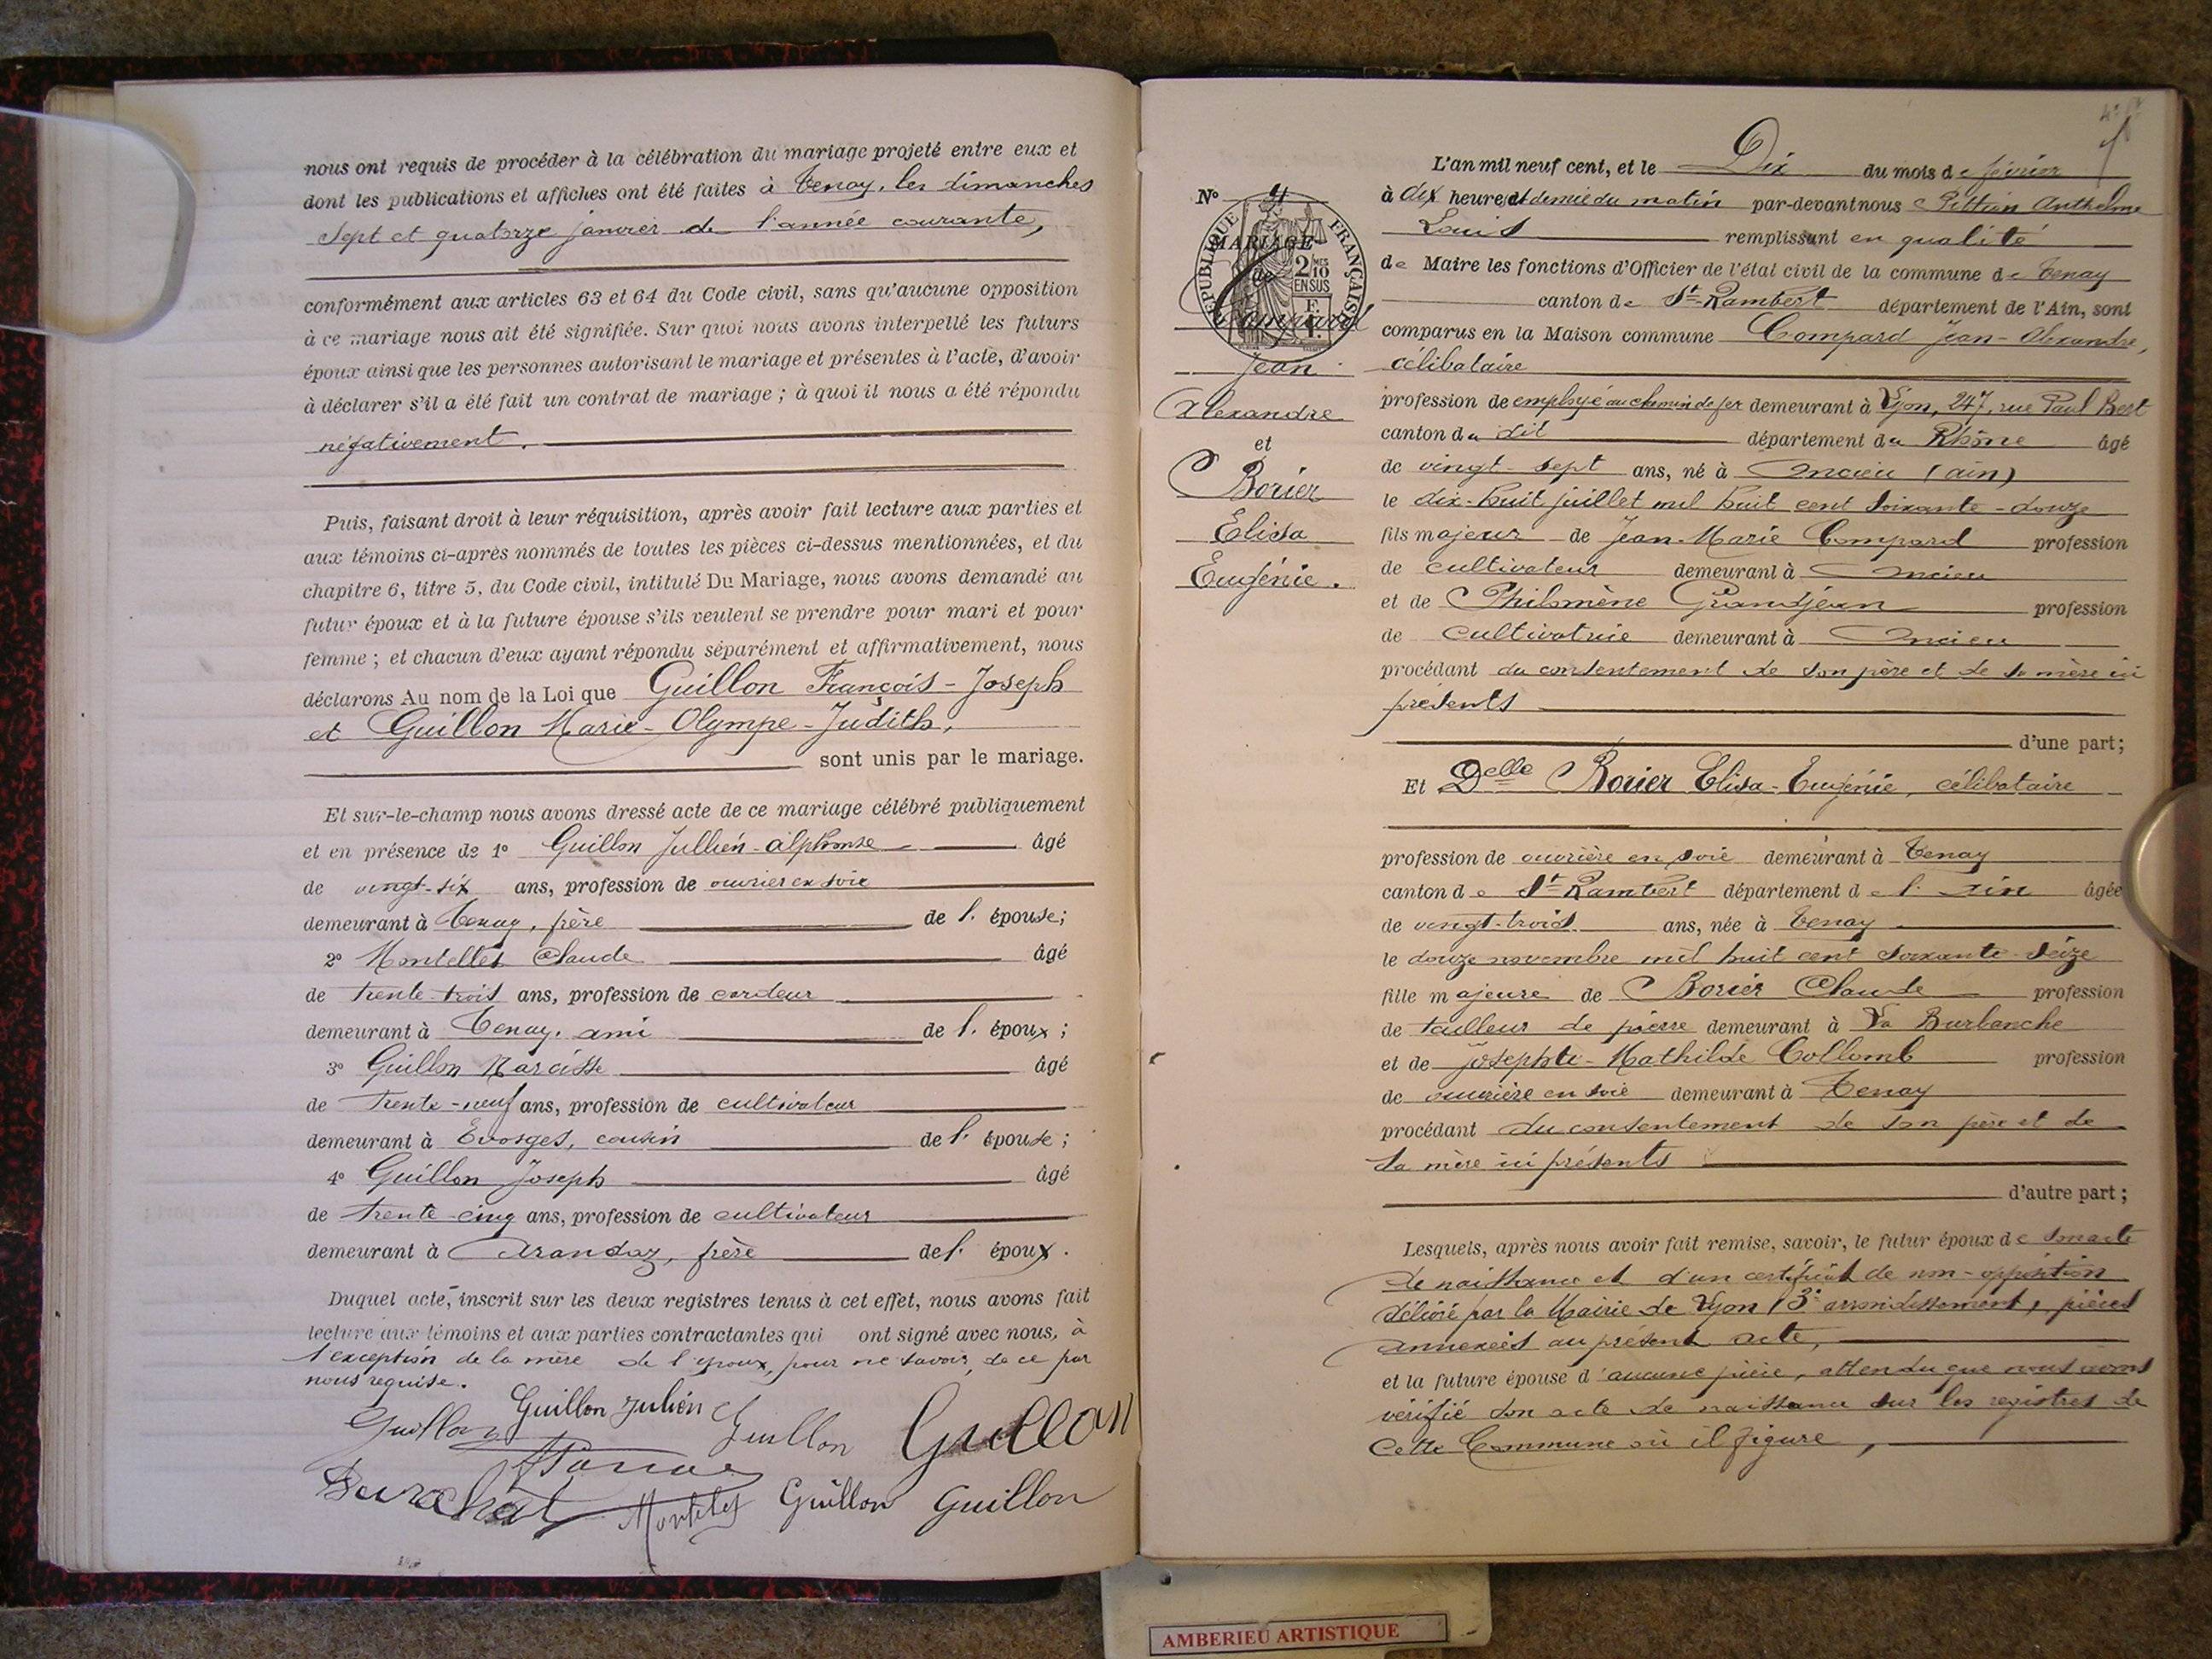 nous ont requis de procéder à la célébration du mariage projeté entre eux et
dont les publications et affiches ont été faites à Tenay, les dimanches
sept et quatorze janvier de l'année courante,
conformément aux articles 63 et 64 du Code civil, sans qu'aucune opposition
à ce mariage nous ait été signifiée. Sur quoi nous avons interpellé les futurs
époux ainsi que les personnes autorisant le mariage et présentes à l'acte, d'avoir
à déclarer s'il a été fait un contrat de mariage ; à quoi il nous a été répondu
négativement.
Puis, faisant droit à leur réquisition, après avoir fait lecture aux parties et
aux témoins ci-après nommés de toutes les pièces ci-dessus mentionnées, et du
chapitre 6, titre 5, du Code civil, intitulé Du Mariage, nous avons demandé au
futur époux et à la future épouse s'ils veulent se prendre pour mari et pour
femme ; et chacun d'eux ayant répondu séparément et affirmativement, nous
déclarons Au nom de la Loi que Guillon François-Joseph
et Guillon Marie-Olympe-Judith,
sont unis par le mariage.
Et sur-le-champ nous avons dressé acte de ce mariage célébré publiquement
et en présence de 1° Guillon Jullien-alphonse âgé
de vingt-six ans, profession de ouvrier en soie
demeurant à Tenay, frère de l'épouse;
2° Montellet Claude âgé
de trente-trois ans, profession de cardeur
demeurant à Tenay, ami de l'époux ;
3° Guillon Narcisse âgé
de trente-neuf ans, profession de cultivateur
demeurant à Evosges, cousin de l'épouse ;
4° Guillon Joseph âgé
de trente-cinq ans, profession de cultivateur
demeurant à Arandaz, frère de l'époux.
Duquel acte, inscrit sur les deux registres tenus à cet effet, nous avons fait
lecture aux témoins et aux parties contractantes qui ont signé avec nous, à
l'exception de la mère de l'époux, pour ne savoir, de ce par
nous requise.
Guillon Guillon Julien Guillon Guillon
Guillon Guillon
L'an mil neuf cent, et le Dix du mois de février
à dix heures et demie du matin par-devant nous Anthelme
Louis remplissant en qualité
de Maire les fonctions d'Officier de l'état civil de la commune de Tenay
canton de St-Rambert département de l'Ain, sont
comparus en la Maison commune Compard Jean-Alexandre,
célibataire
profession de employé au chemin de fer demeurant à Lyon, 247, rue Paul Bert
canton du dit département du Rhône âgé
de vingt-sept ans, né à Oncieu (ain)
le dix-huit juillet mil huit cent soixante-douze
fils majeur de Jean-Marie Compard profession
de cultivateur demeurant à Oncieu
et de Philomène Grandjean profession
de cultivatrice demeurant à Oncieu
procédant du consentement de son père et de sa mère ici
présents
d'une part;
Et Delle Borier Elisa-Eugénie, célibataire
profession de ouvrière en soie demeurant à Tenay
canton de St Rambert département de l'Ain âgée
de vingt-trois ans, née à Tenay
le douze novembre mil huit cent soixante-seize
fille majeure de Borier Claude profession
de tailleur de pierre demeurant à La Burbanche
et de Josephte-Mathilde Collomb profession
de ouvrière en soie demeurant à Tenay
procédant du consentement de son père et de
sa mère ici présents
d'autre part ;
Lesquels, après nous avoir fait remise, savoir, le futur époux de son acte
de naissance et d'un certificat de non-opposition
délivré par la Mairie de Lyon (3e arrondissement), pièces
annexées au présent acte,
et la future épouse d'aucune pièce, attendu que nous avons
vérifié son acte de naissance sur les registres de
cette Commune où il figure,
N° 4
MARIAGE
de
Compard
Jean
Alexandre
et
Borier
Elisa
Eugénie.
RÉPUBLIQUE FRANÇAISE
2 MES
10
EN SUS
AMBERIEU ARTISTIQUE